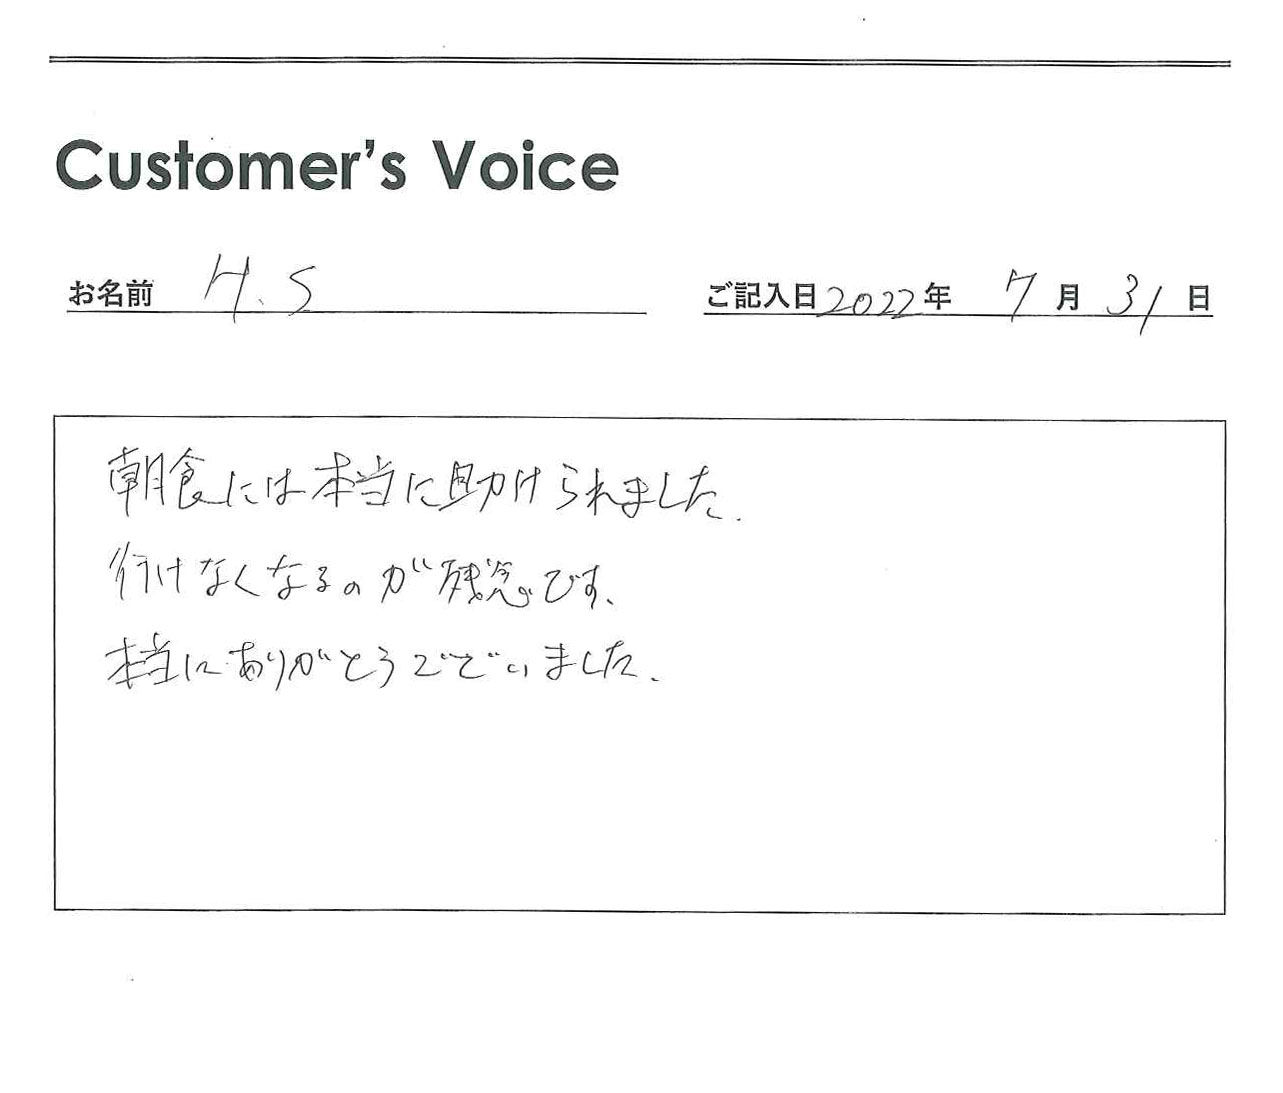 Customer's Voice
お名前 H.S ご記入日2022年 7月 31日
朝食には本当に助けられました.
行けなくなるのが残念です、
本当にありがとうございました.